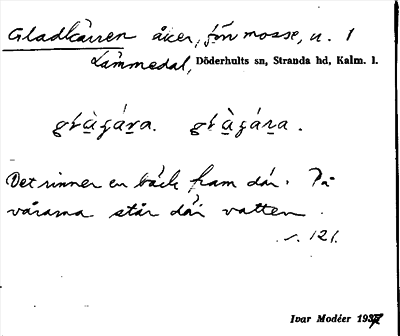 Gladkärren åker, förr mosse, n. 1
Lämmedal, Döderhults sn, Stranda hd, Kalm. l.
Det rinner en bäck fram där. På
vårarna står där vatten.
s. 121.
Ivar Modéer 1937